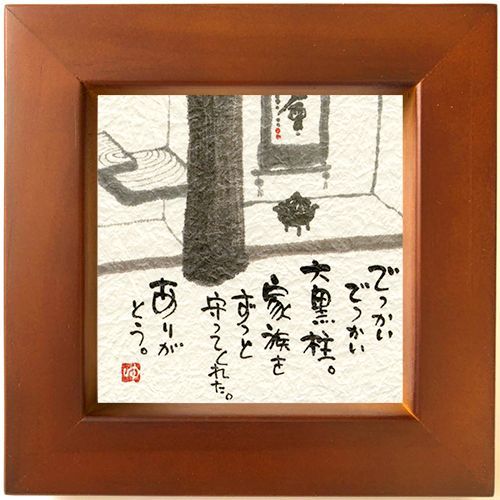 でっかい
でっかい
大黒柱。
家族を
ずっと
守ってくれた。
ありが
とう。